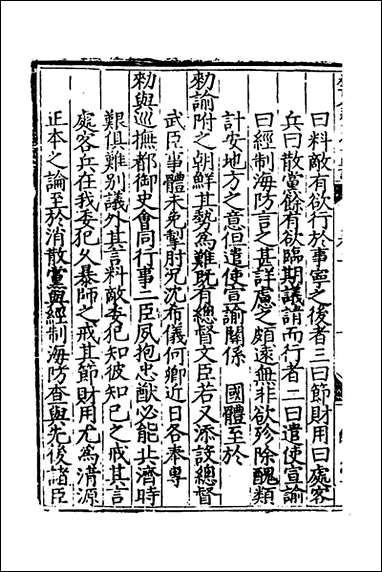 曰料敵有欲行於事寧之後者三曰節財用曰處客
兵曰散黨餘有欲臨期議請而行者二曰遣使宣諭
曰經制海防言之甚詳慮之頗遠無非欲殄除醜類
計安地方之意但遣使宣諭關係 國體至於
勑諭附之朝鮮其勢為難既有總督文臣若又添設總督
武臣事體未免掣肘況沈布儀何卿近日各奉專
勑與巡撫都御史會同行事二臣夙抱忠猷必能共濟時
艱俱難別議外其言料敵委犯知彼知己之戒其言
處客兵在我委犯久暴師之戒其節財用尤為清源
正本之論至於消散黨與經制海防查與先後諸臣